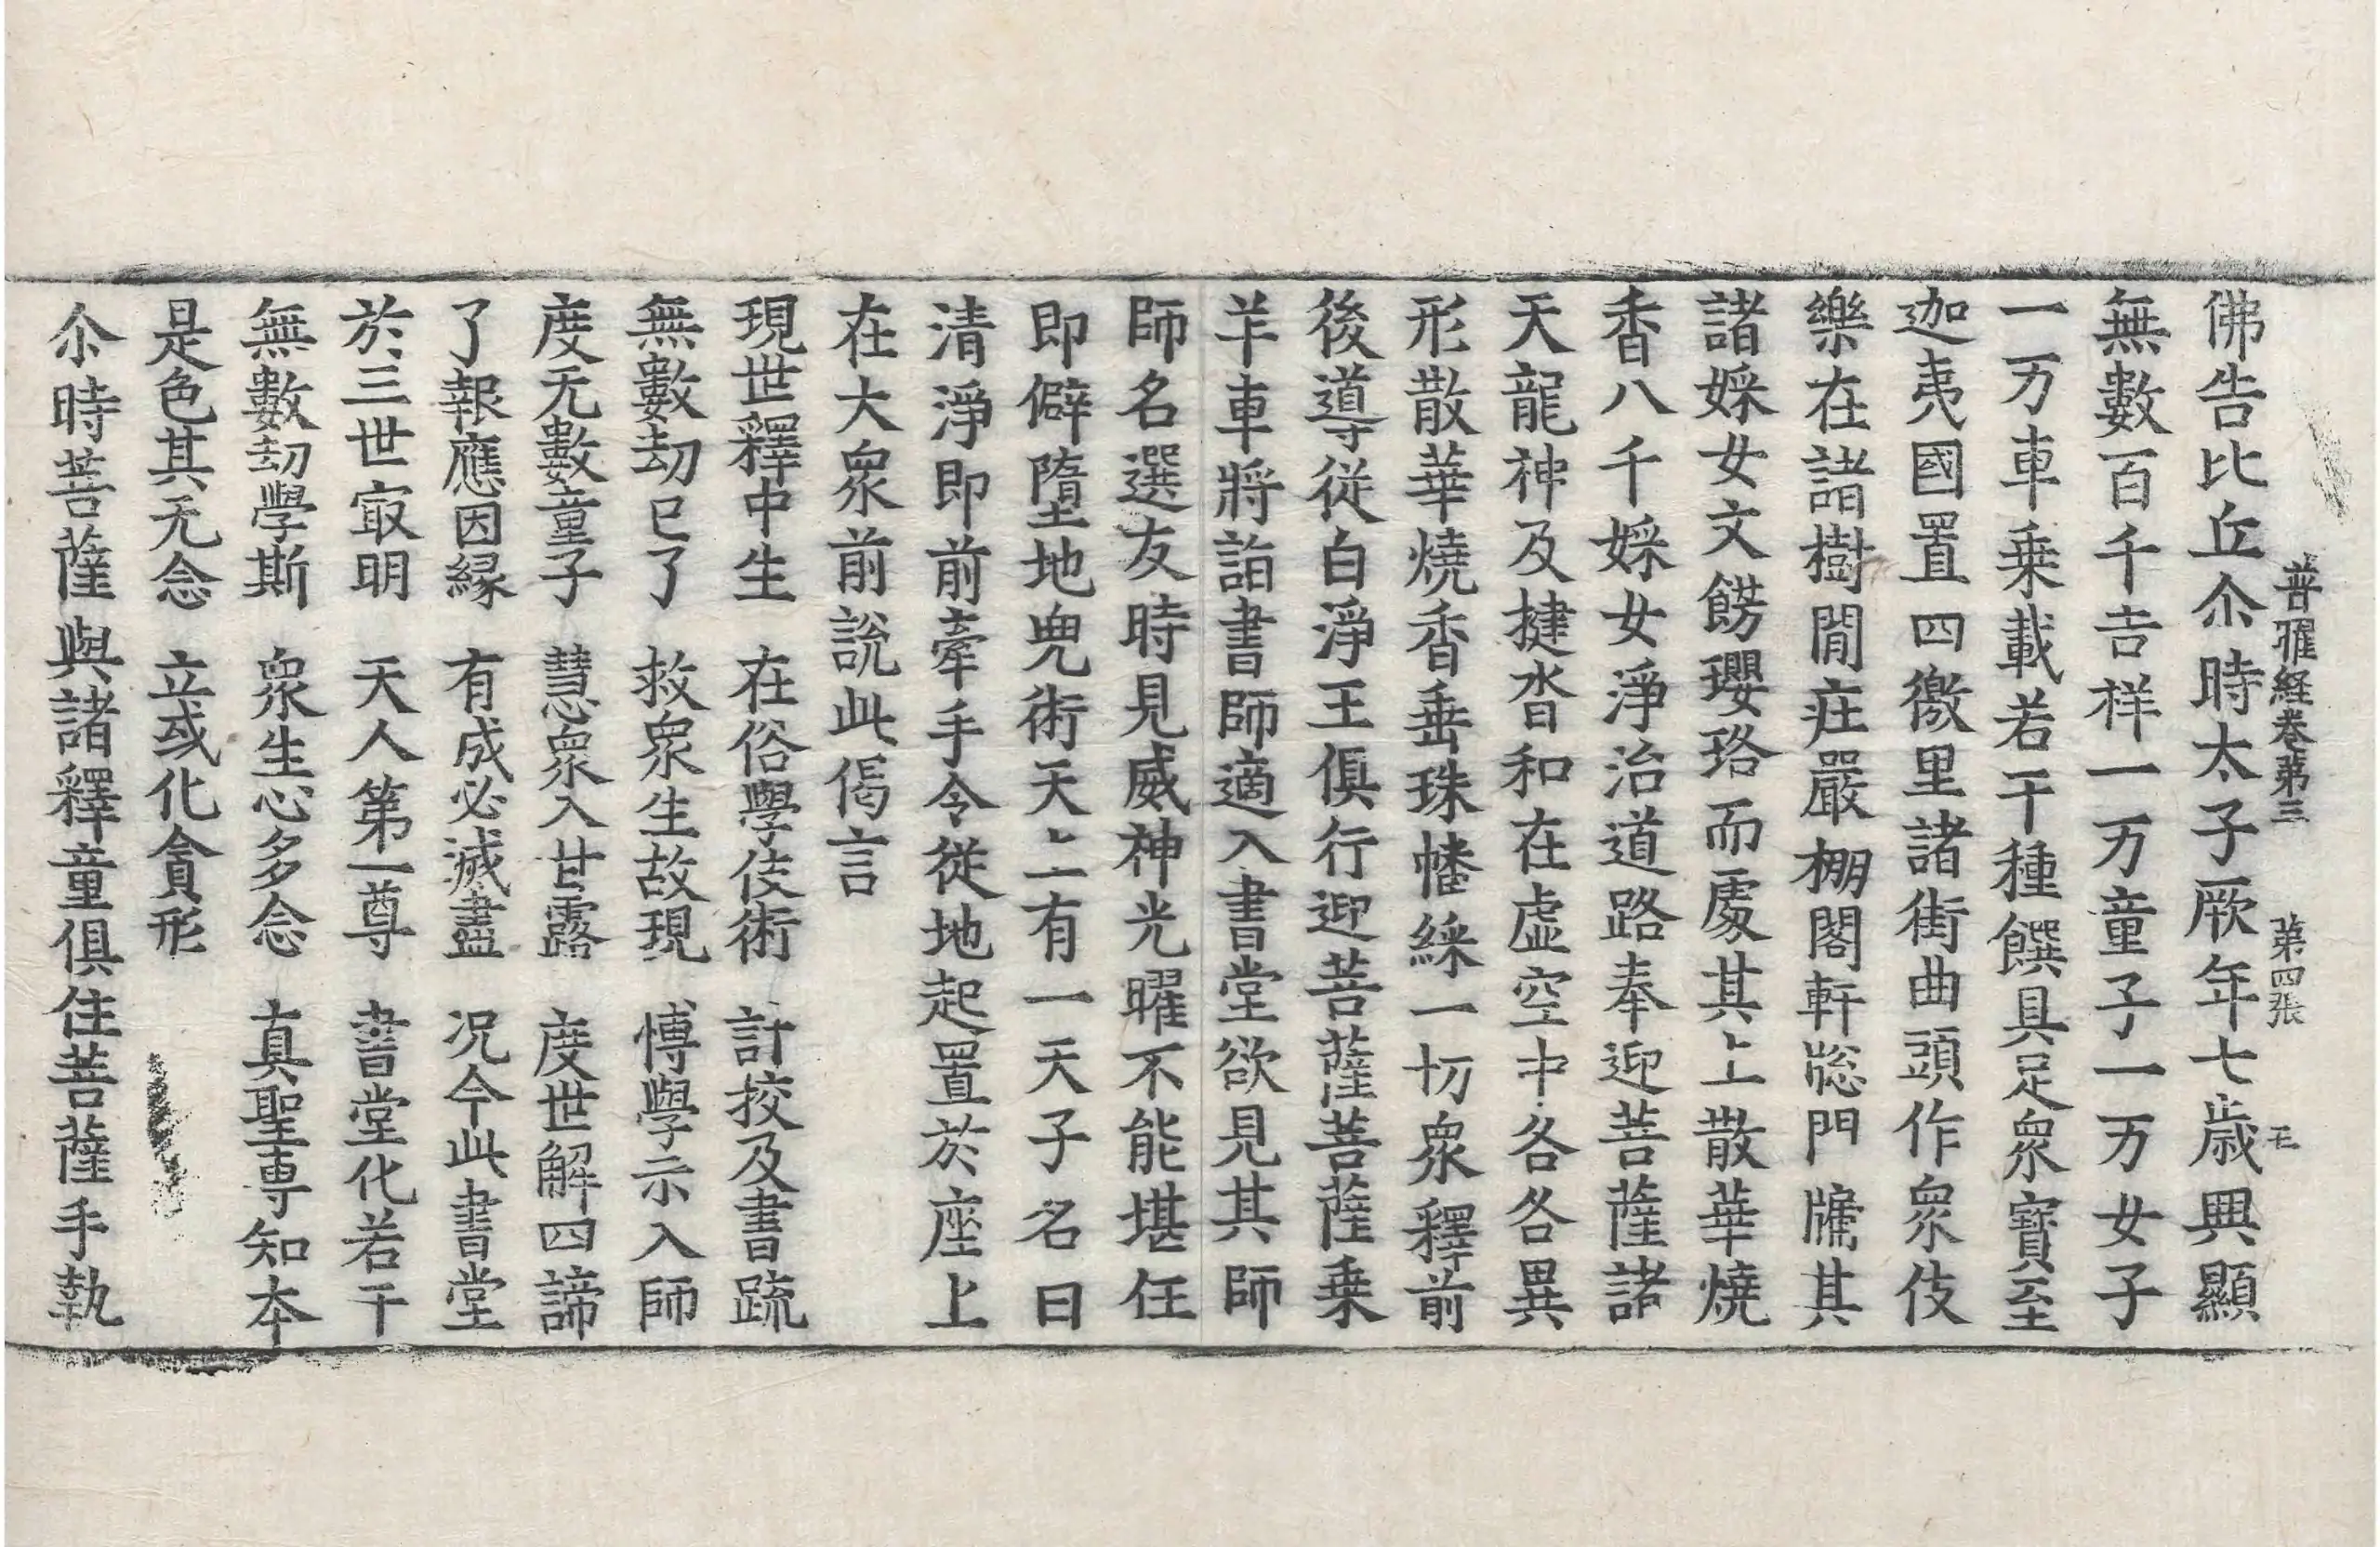 普曜経卷第三 第四張
佛告比丘尒時太子厥年七歳興顯
無數百千吉祥一万童子一万女子
一万車乗載若干種饌具足衆寳至
迦夷國置四徼里諸街曲頭作衆伎
樂在諸樹閒庄嚴棚閣軒窓門牗其
諸婇女文餝瓔珞而處其上散華燒
香八千婇女淨治道路奉迎菩薩諸
天龍神及揵沓和在虛空中各各異
形散華燒香垂珠幡綵一切衆釋前
後導從白淨王俱行迎菩薩菩薩乗
羊車將詣書師適入書堂欲見其師
師名選友時見威神光曜不能堪任
即僻墮地兜術天上有一天子名曰
清淨即前牽手令從地起置於座上
在大衆前說此偈言
現世釋中生 在俗學伎術 計挍及書䟽
無數劫已了 救衆生故現 博學示入師
度无數童子 慧衆入甘露 度世解四諦
了報應因縁 有成必滅盡 况今此書堂
於三世㝡明 天人第一尊 書堂化若干
無數劫學斯 衆生心多念 真聖專知本
是色其无念 立或化貪形
尒時菩薩與諸釋童俱住菩薩手執